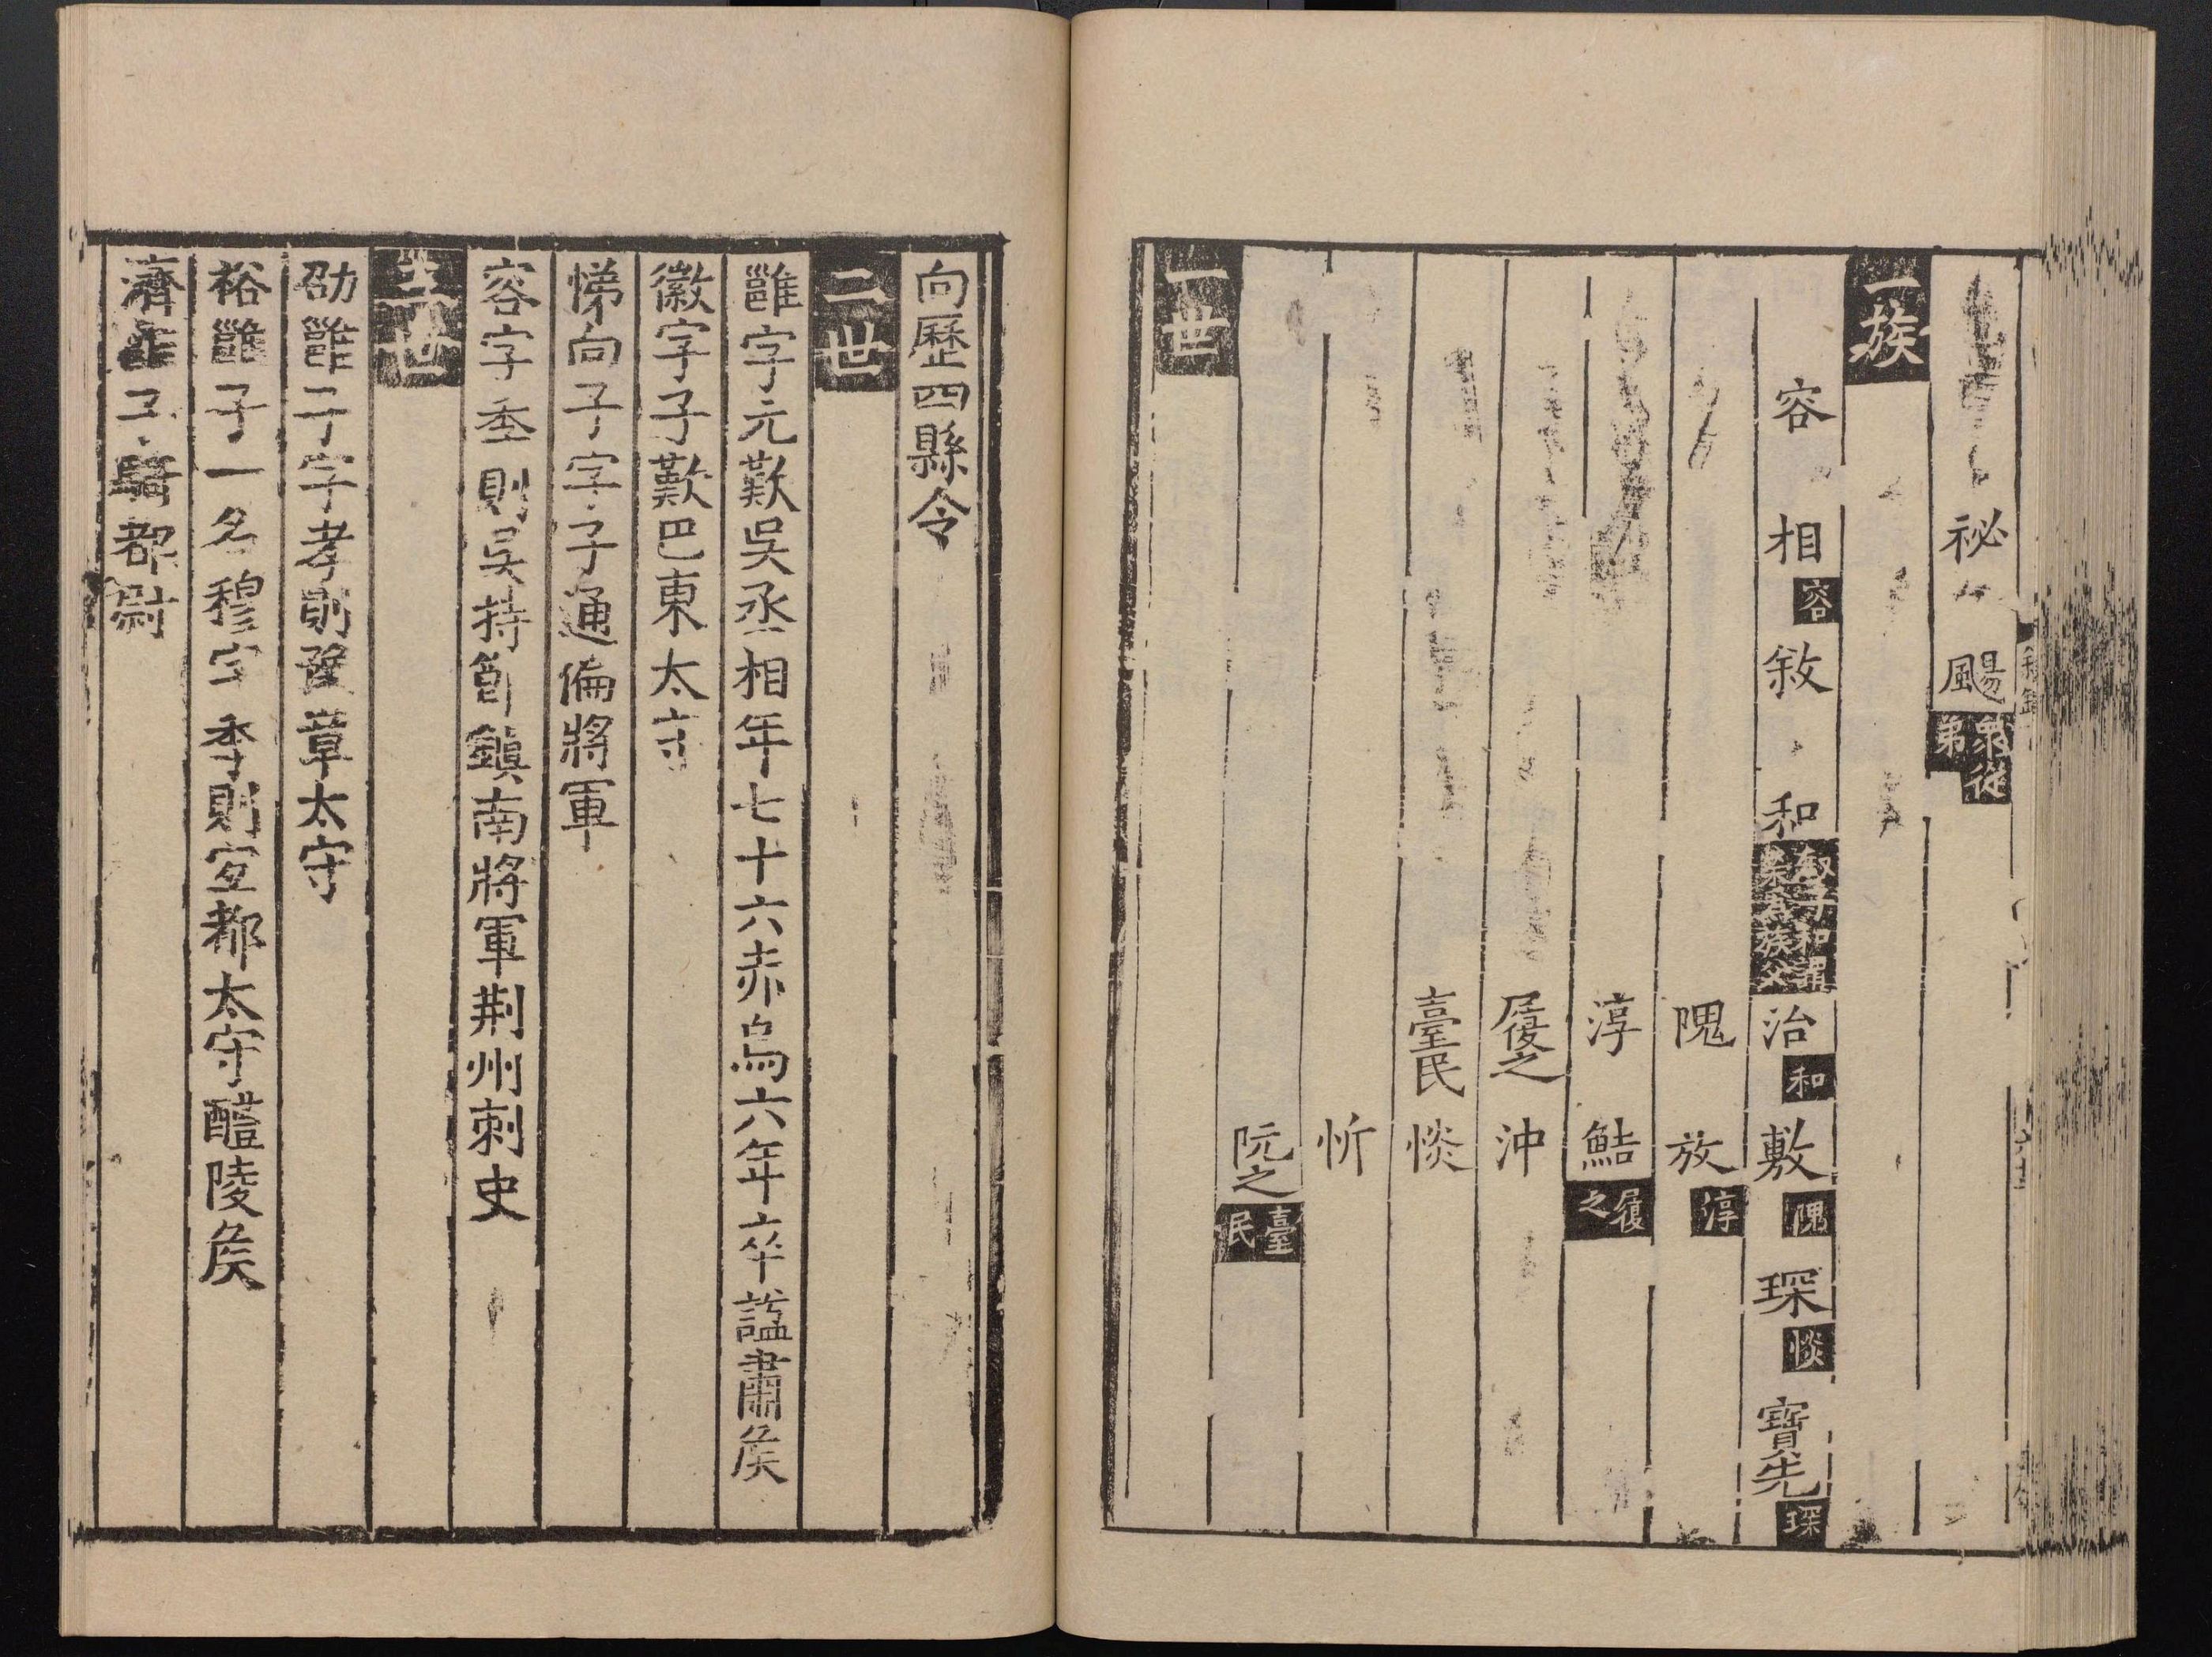 祕 颺 衆從弟
一族
容 相 容 敘 和 敍子和謂榮爲族父 治 和 敷 隗 琛 惔 寶先 琛
隗 放 淳
淳 鮚 履之
履之 沖
臺民 惔
忻
阮之 臺民
一世
向歷四縣令
二世
雝字元歎吳丞相年七十六赤烏六年卒謚肅矦
徽字子歎巴東太守
悌向子字子通偏將軍
容字季則吳持節鎮南將軍荆州刺史
三世
劭雝子字孝則豫章太守
裕雝子一名穆字季則宜都太守醴陵矦
濟雝子騎都尉